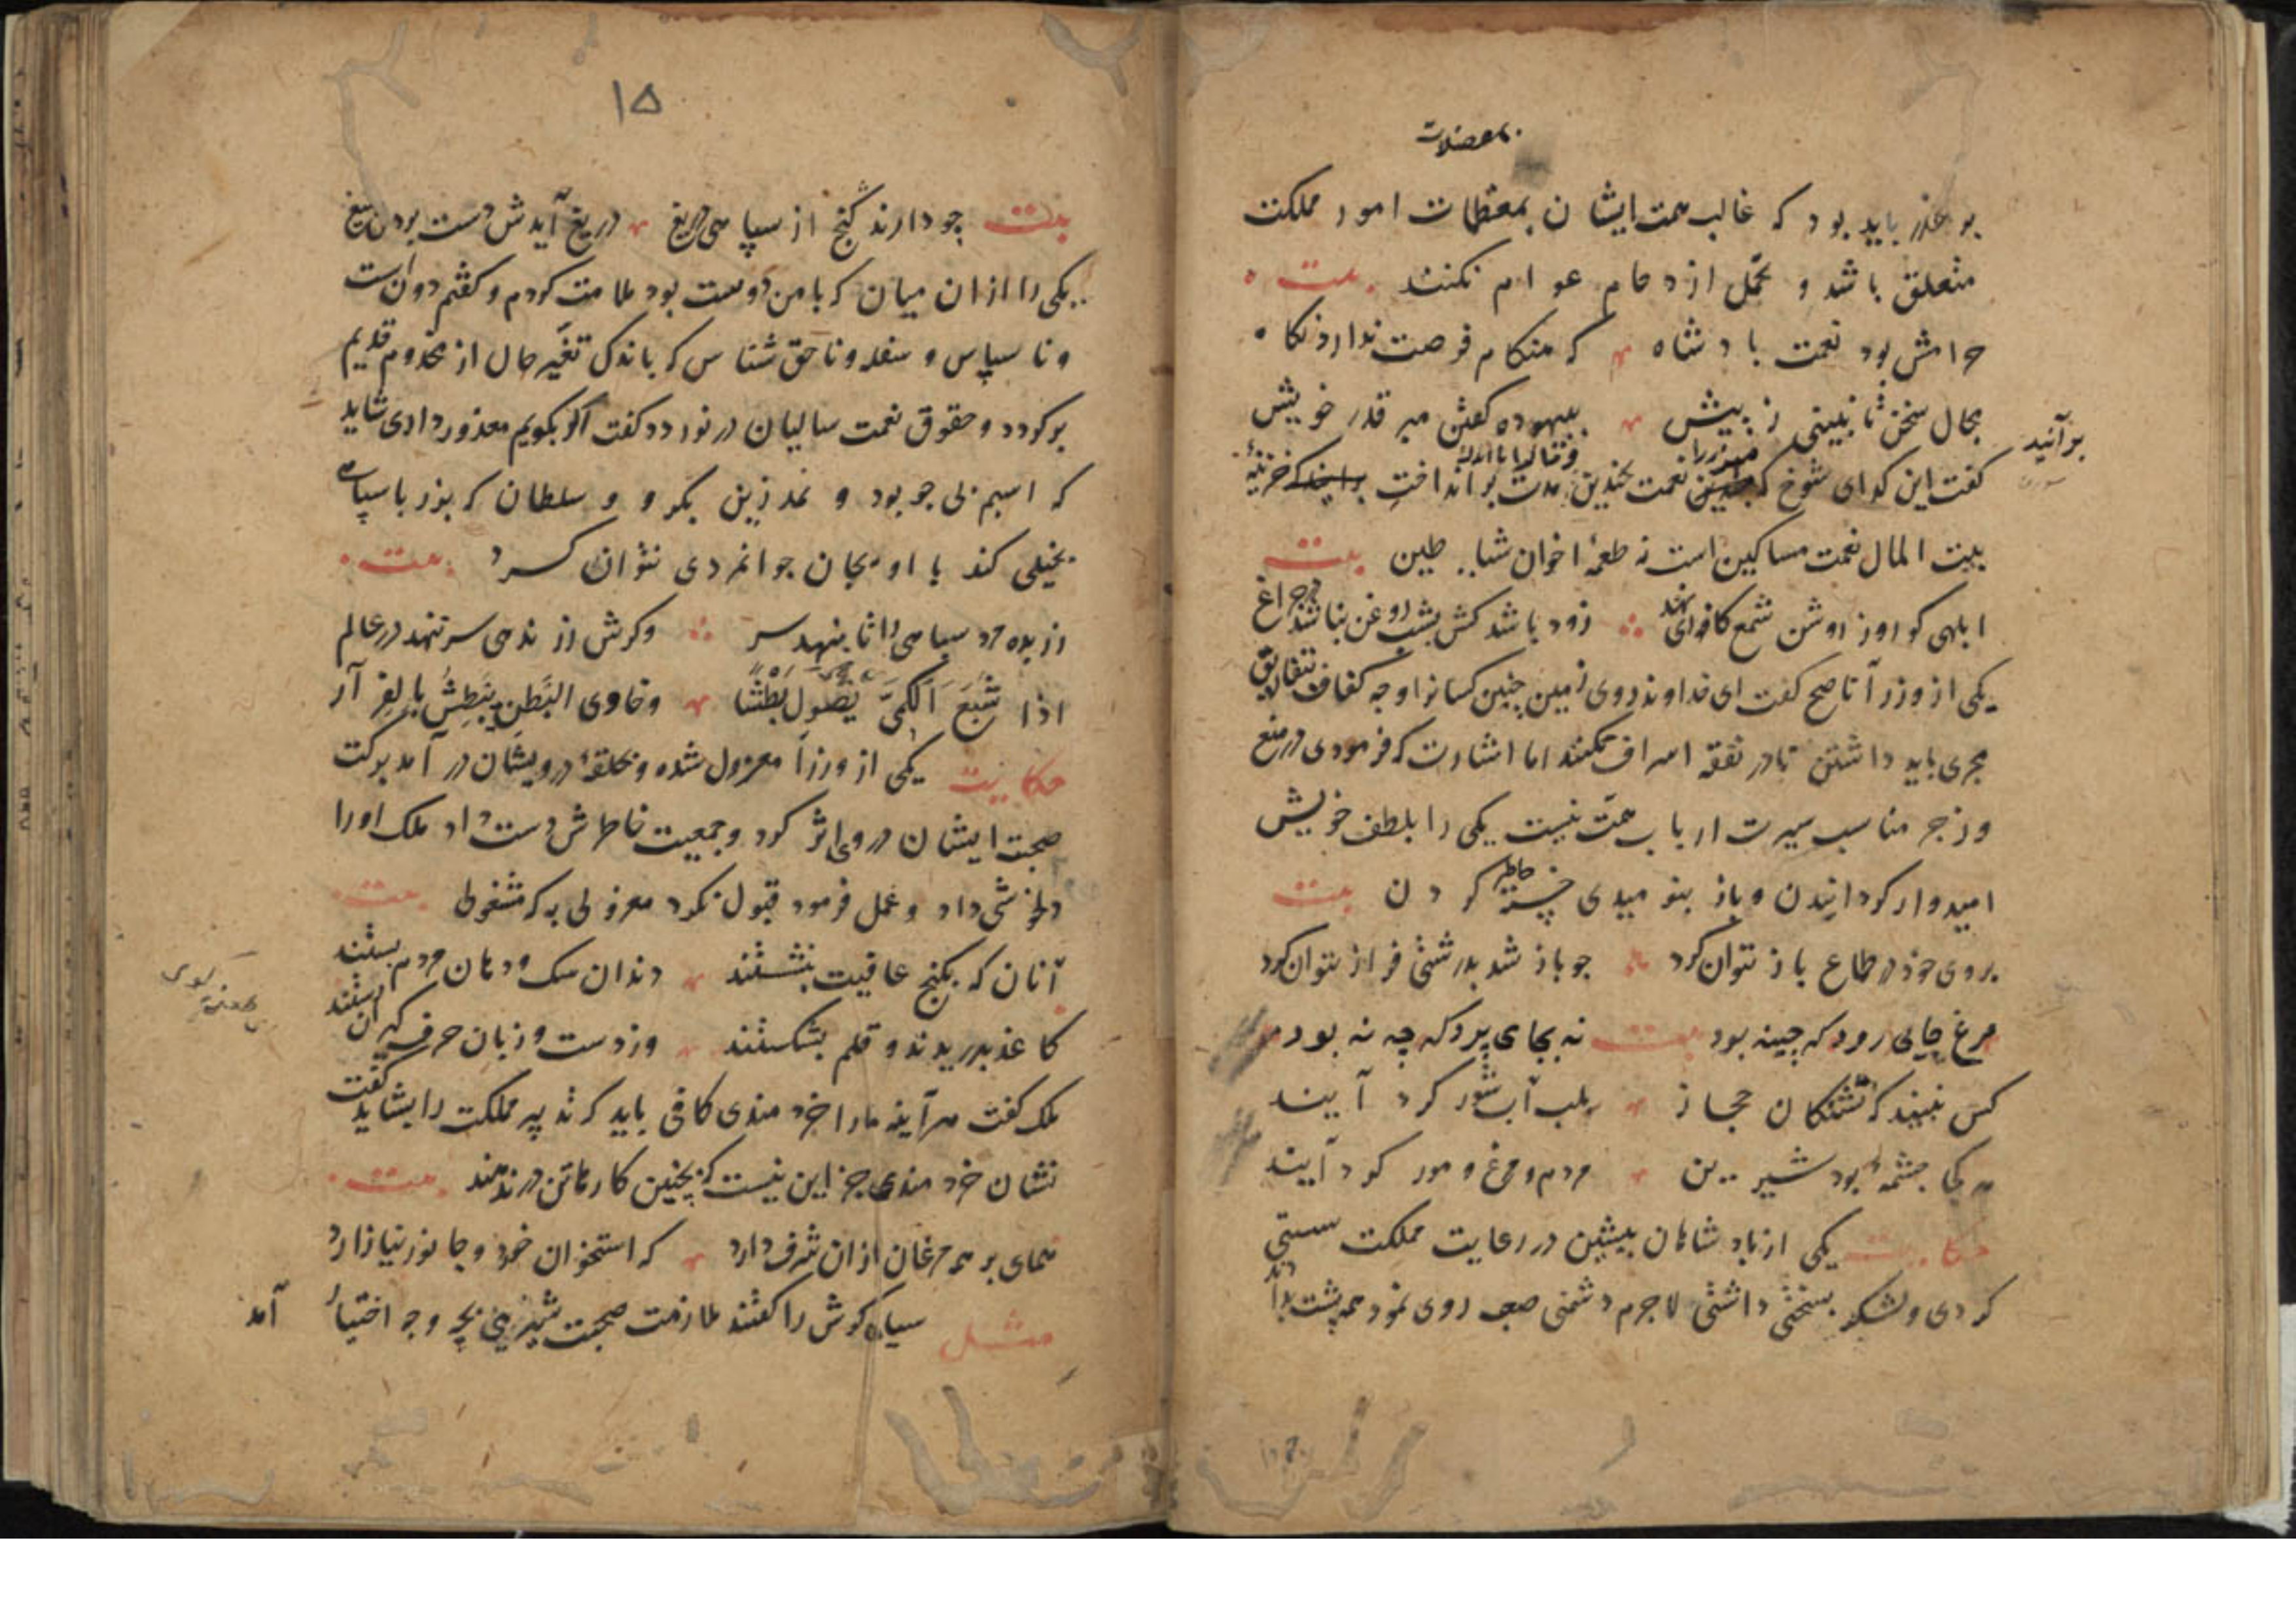 بمعضلات
بر عذر باید بود که غالب همت ایشان بمعظمات امور مملکت
متعلق باشد و تحمل ازدحام عوام نکنند بیت
حرامش بود نعمت بادشاه که هنکام فرصت ندارد نکاه
مجال سخن تا نبینی ز پیش ببیهوده کفتن مبر قدر خویش
برآنید
کفت این کدای شوخ که چندین نعمت بچندین مدت برانداخت برانید که خزینهٔ
بیت المال نعمت مساکین است نه طعمهٔ اخوان شیاطین بیت
ابلهی کو روز روشن شمع کافوری نهد زود باشد کش بشب روغن نباشد در چراغ
یکی از وزرآ ناصح کفت ای خداوند روی زمین چنین کسانرا وجه کفاف بتفاریق
مجری باید داشتن تا در نفقه اسراف نکنند اما اشارت که فرمودی در منع
و زجر مناسب سیرت ارباب همت نیست یکی را بلطف خویش
امیدوار کردانیدن و باز بنومیدی خسته خاطر کردن بیت
بروی خود در طماع باز نتوان کرد چو باز شد بدرشتی فراز نتوان کرد
مرغ جایی رود که چینه بود بیت نه بجای پرد که چه نه بود
کس نبیند که تشنکان حجاز بلب آب شور کرد آیند
هر کجا چشمهٔ بود شیرین مردم و مرغ و مور کرد آیند
حکایت یکی از بادشاهان پیشین در رعایت مملکت سستی
کردی و لشکر بسختی داشتی لاجرم دشمنی صعب روی نمود همه پشت بدادند
۱۵
بیت چو دارند کنج از سپاهی دریغ دریغ آیدش دست بردن بتیغ
یکی را از ان میان که با من دوست بود ملامت کردم و کفتم دونست
و ناسپاس و سفله و ناحق شناس که باندک تغیر حال از مخدوم قدیم
برکردد و حقوق نعمت سالیان در نوردد کفت اکر بکویم معذور داری شاید
که اسبم بی جو بود و نمد زین بکرو و سلطان که بزر با سپاهی
بخیلی کند با او بجان جوانمردی نتوان کرد بیت
زر بده مرد سپاهی را تا بنهد سر وکرش زر ندهی سر بنهد در عالم
اذا شَبَعَ الکمیّ یَصُول بَطْشًا وخاوی البَطن یَبطِشُ بالفِرار
حکایت یکی از وزرآ معزول شده و بحلقهٔ درویشان در آمد برکت
صحبت ایشان در وی اثر کرد و جمعیت خاطرش دست داد ملک اورا
دلخوشی داد و عمل فرمود قبول نکرد معزولی به که مشغولی بیت
آنان که بکنج عافیت بنشستند دندان سک و دهان مردم بستند
کاغذ بدریدند و قلم بشکستند وز دست و زبان حرف کیران رستند
ملک کفت هرآینه مارا خردمندی کافی باید که تدبیر مملکت را بشاید کفت
نشان خردمندی جز این نیست که بچنین کارها تن در ندهند بیت
همای بر همه مرغان از ان شرف دارد که استخوان خورد و جانور نیازارد
مثل سیاه کوش را کفتند ملازمت صحبت شیر بچه وجه اختیار آمد